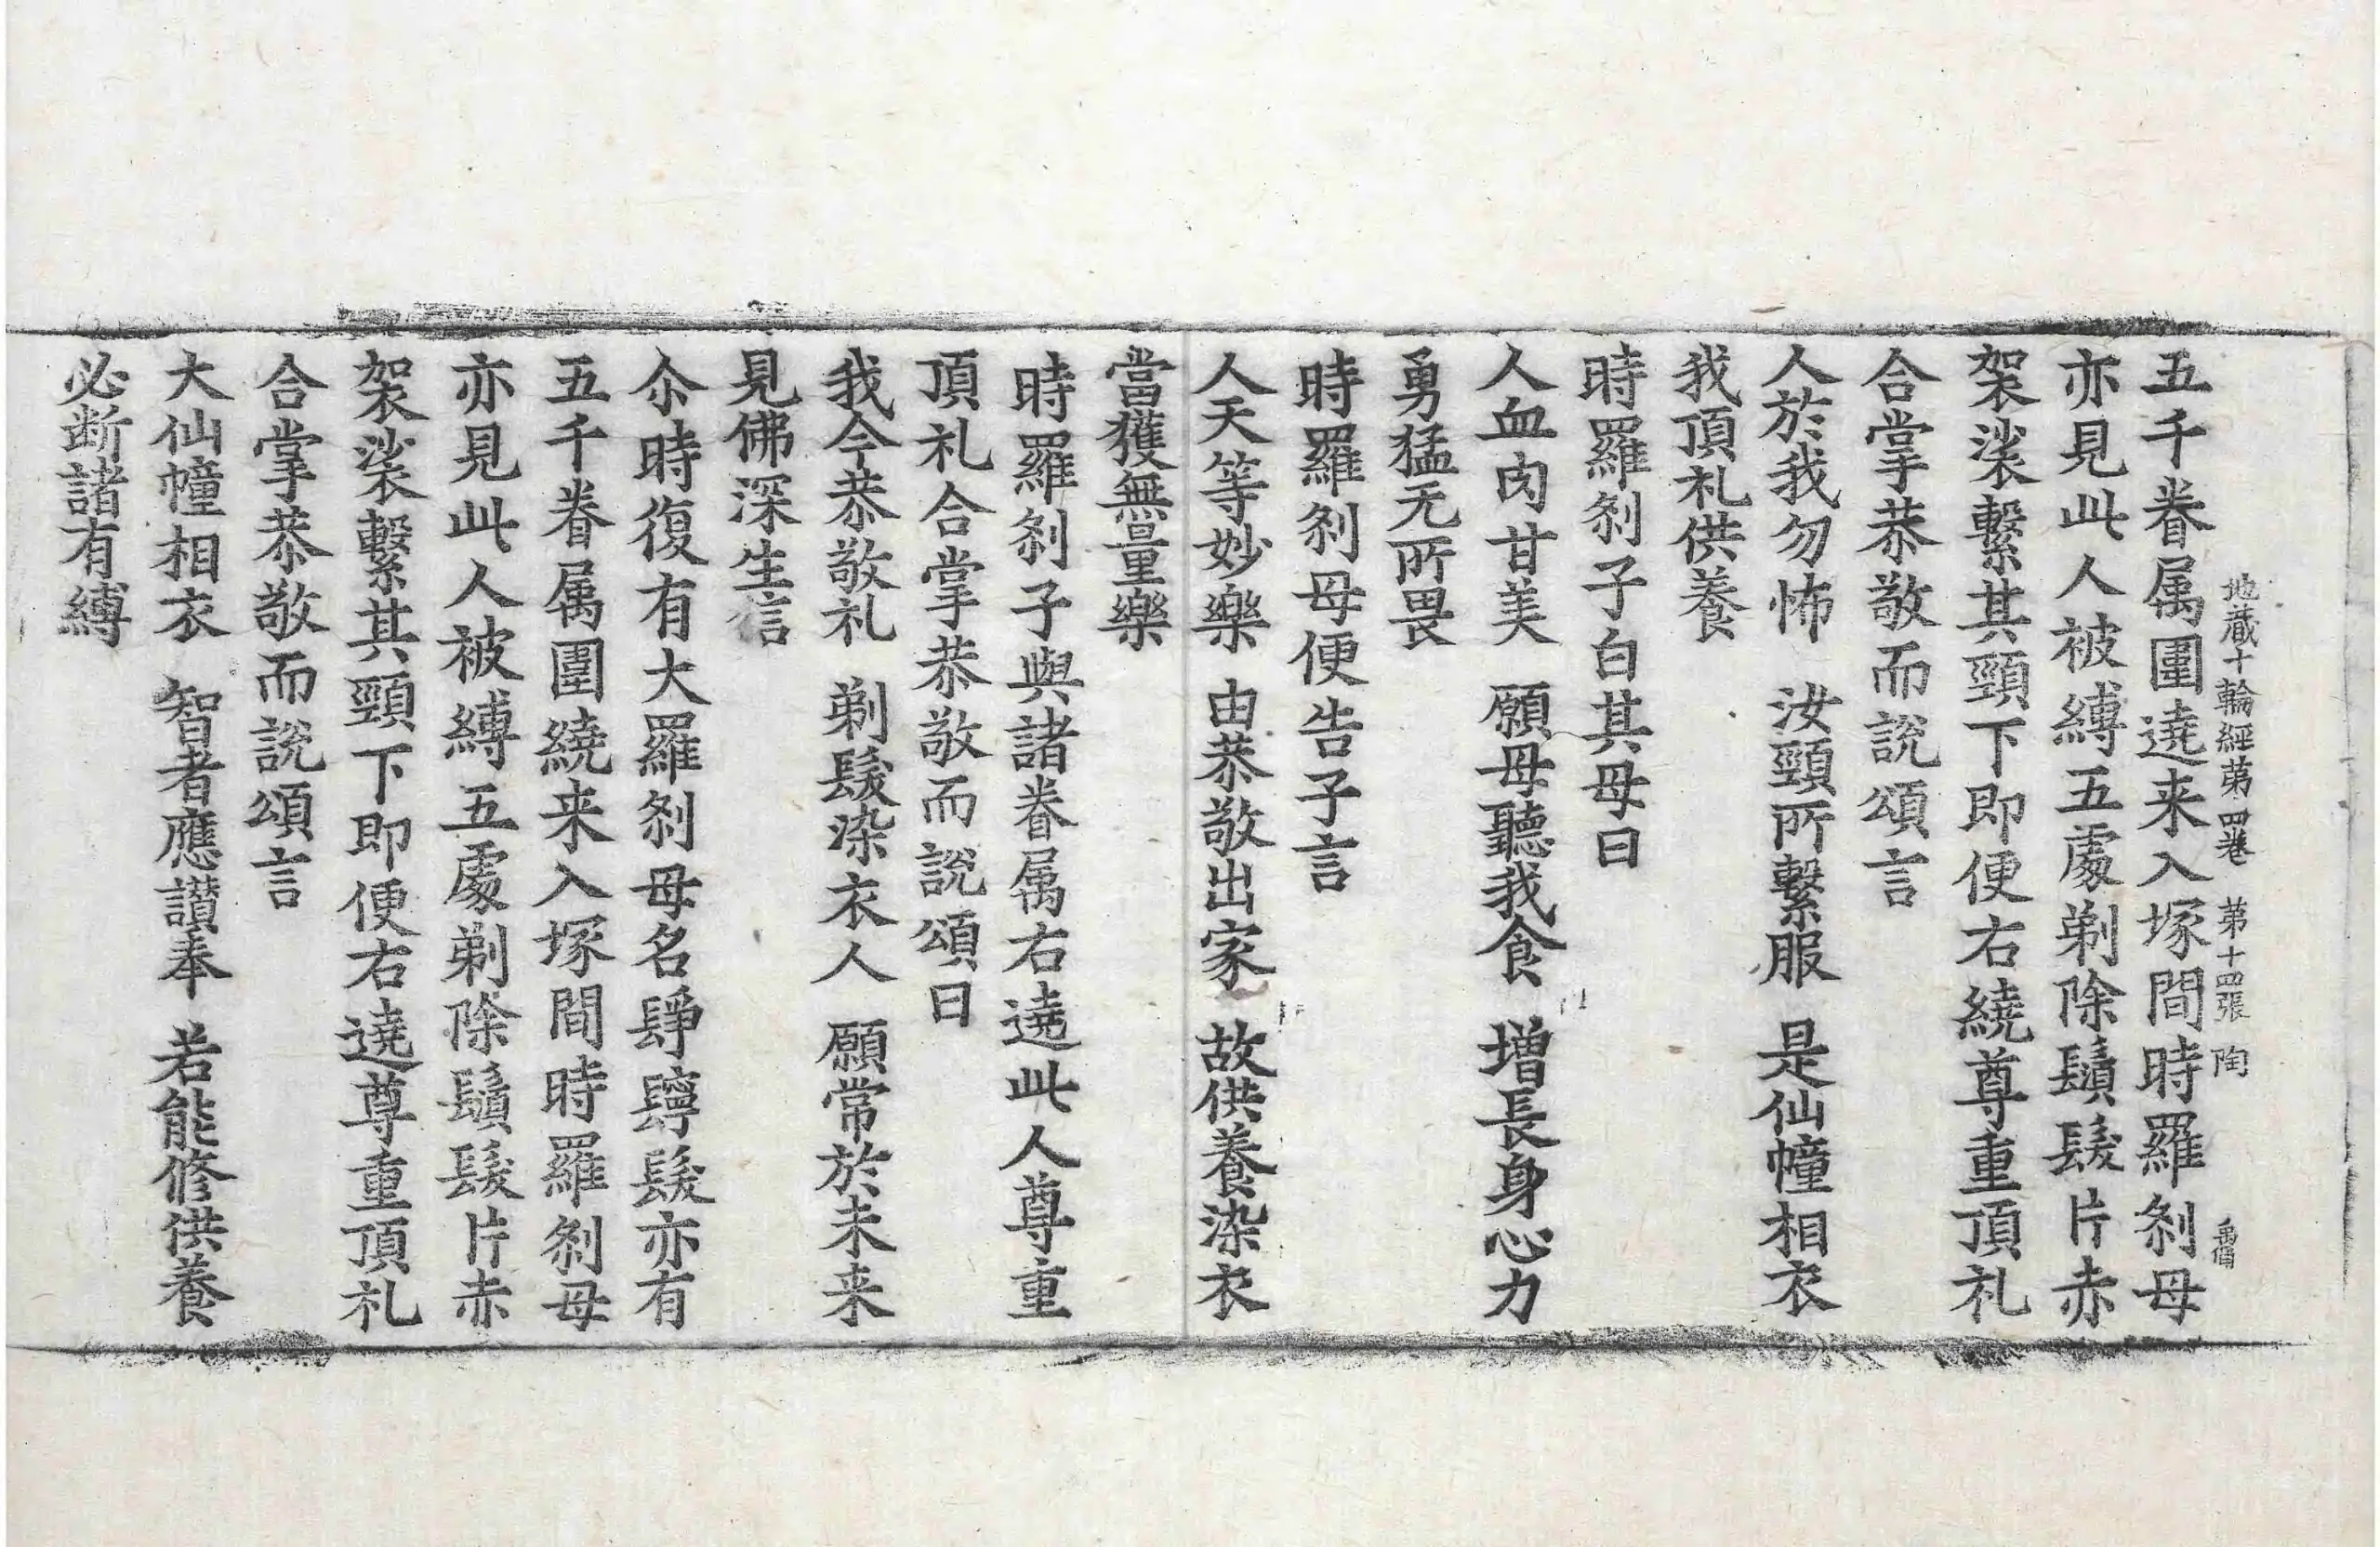 地藏十輪經第四卷 第十四張 陶
五千眷属圍遶来入塚間時羅刹母
亦見此人被縛五處剃除鬚髮片赤
袈裟繫其頸下即便右繞尊重頂礼
合掌恭敬而說頌言
人於我勿怖 汝頸所繫服 是仙幢相衣
我頂礼供養
時羅刹子白其母曰
人血肉甘美 願母聽我食 增長身心力
勇猛无所畏
時羅刹母便告子言
人天等妙樂 由恭敬出家 故供養染衣
當獲無量樂
時羅刹子與諸眷属右遶此人尊重
頂礼合掌恭敬而說頌曰
我今恭敬礼 剃髮染衣人 願常於未来
見佛深生信
尒時復有大羅刹母名髮亦有
五千眷属圍繞来入塚間時羅刹母
亦見此人被縛五處剃除鬚髮片赤
袈裟繫其頸下即便右遶尊重頂礼
合掌恭敬而說頌言
大仙幢相衣 智者應讃奉 若能修供養
必断諸有縛